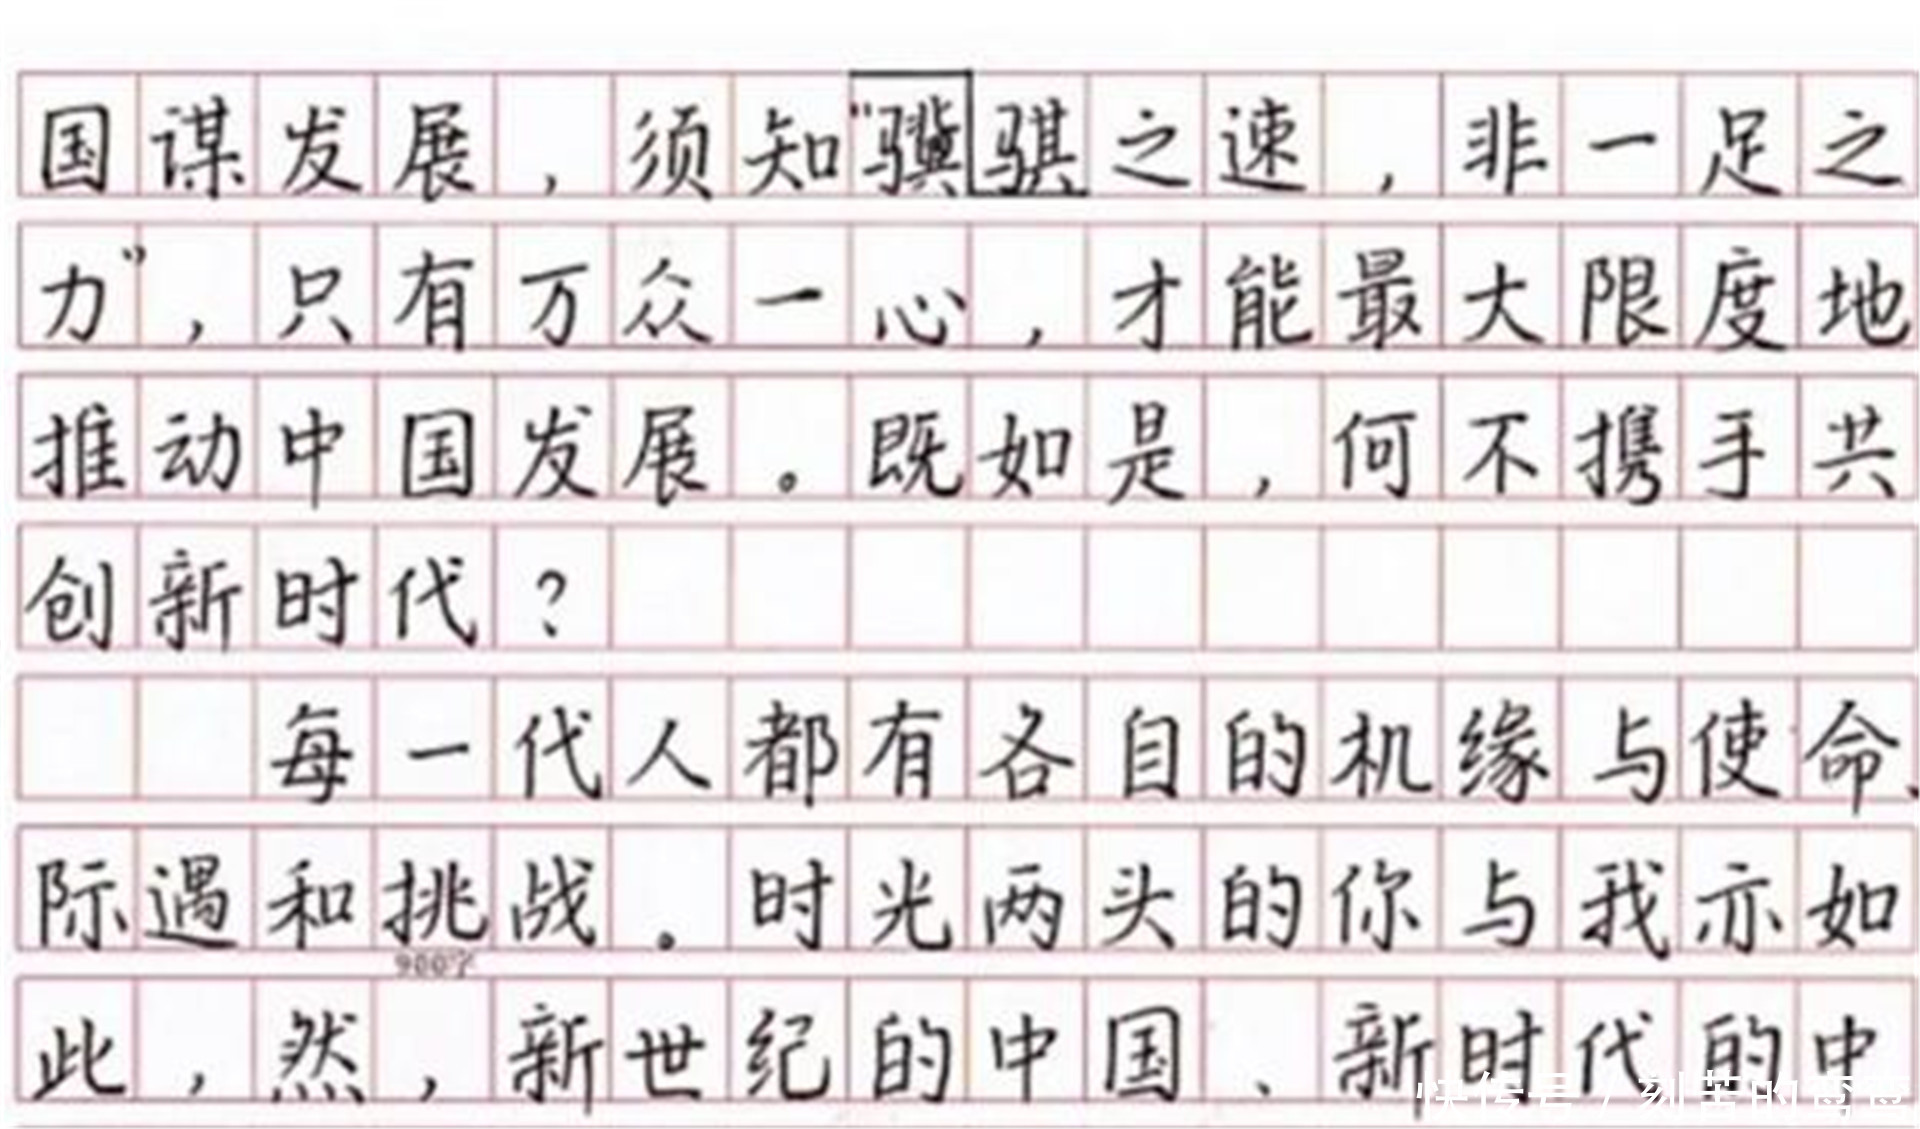 国谋发展，须知“骥骐之速，非一足之
力”，只有万众一心，才能最大限度地
推动中国发展。既如是，何不携手共
创新时代？
每一代人都有各自的机缘与使命、
际遇和挑战。时光两头的你与我亦如
900字
此，然，新世纪的中国、新时代的中
快传号/刻苦的